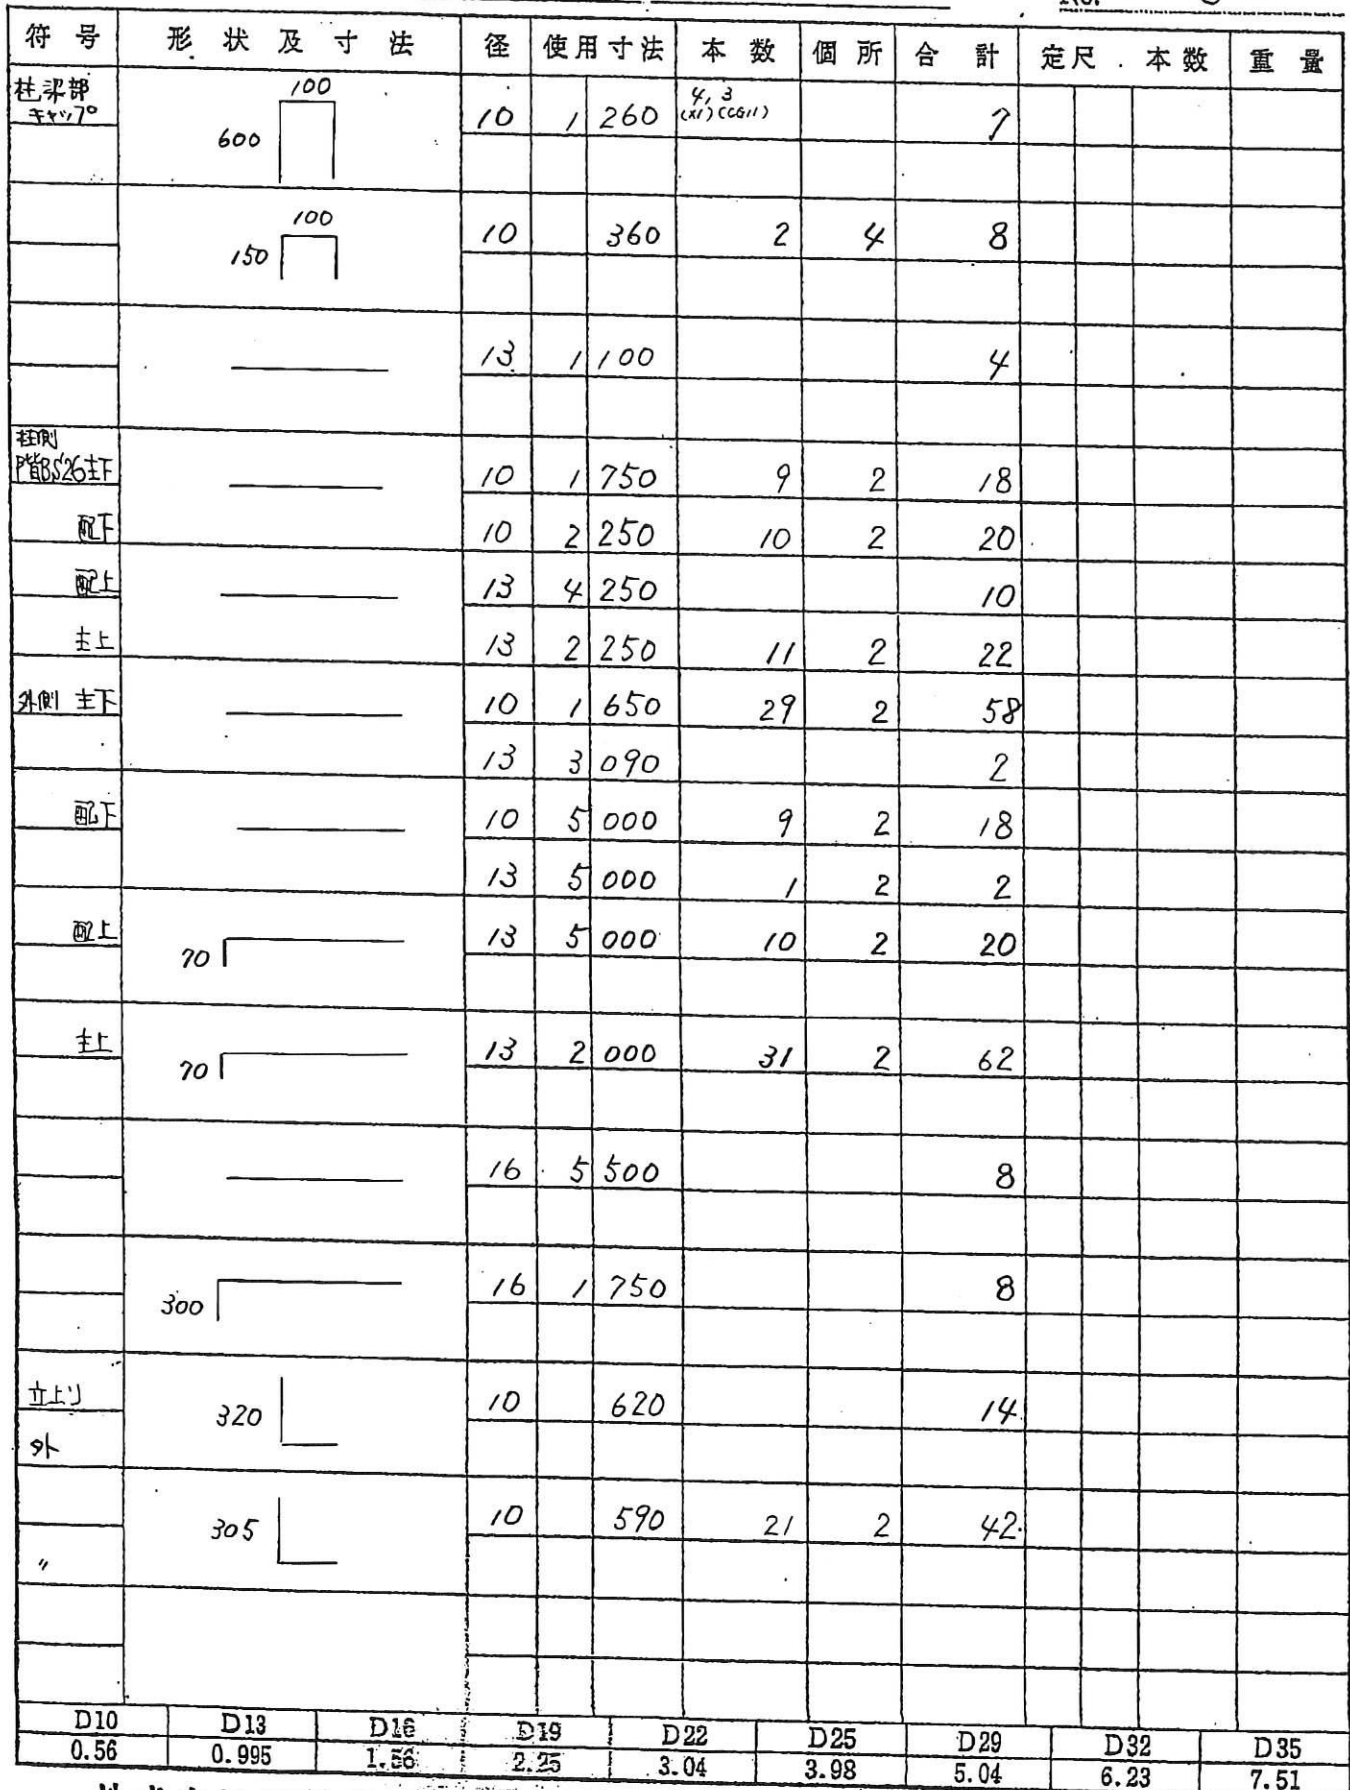 符号 形状及寸法 径 使用寸法 本数 個所 合計 定尺.本数 重量
柱梁部 キャップ 100 600 10 1 260 4, 3 (X1) (CG11) 7
100 150 10 360 2 4 8
13 1 100 4
柱側
階BS26主下 10 1 750 9 2 18
配下 10 2 250 10 2 20
配上 13 4 250 10
主上 13 2 250 11 2 22
外側 主下 10 1 650 29 2 58
13 3 090 2
配下 10 5 000 9 2 18
13 5 000 1 2 2
配上 70 13 5 000 10 2 20
主上 70 13 2 000 31 2 62
16 5 500 8
300 16 1 750 8
立上り 外 320 10 620 14
〃 305 10 590 21 2 42
D10 D13 D16 D19 D22 D25 D29 D32 D35
0.56 0.995 1.56 2.25 3.04 3.98 5.04 6.23 7.51